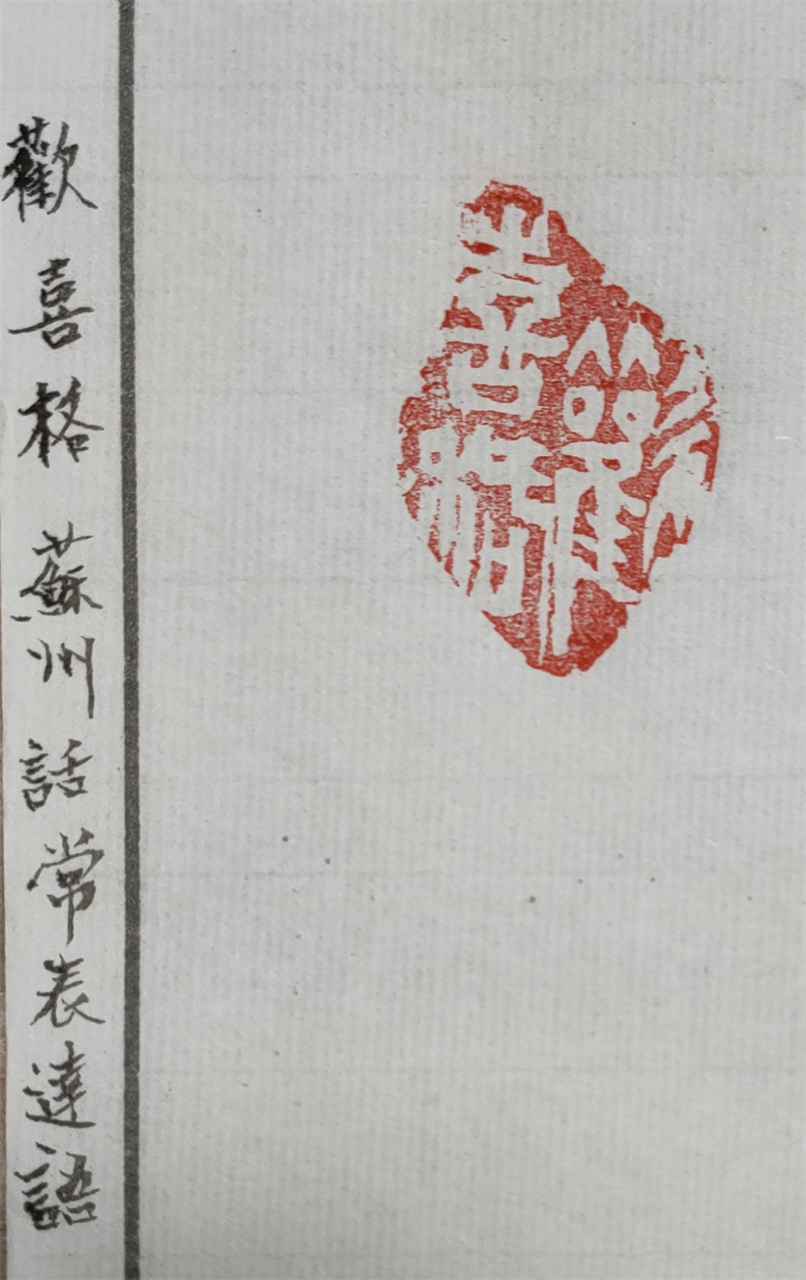 歡喜格
歡喜格蘇州話常表達語